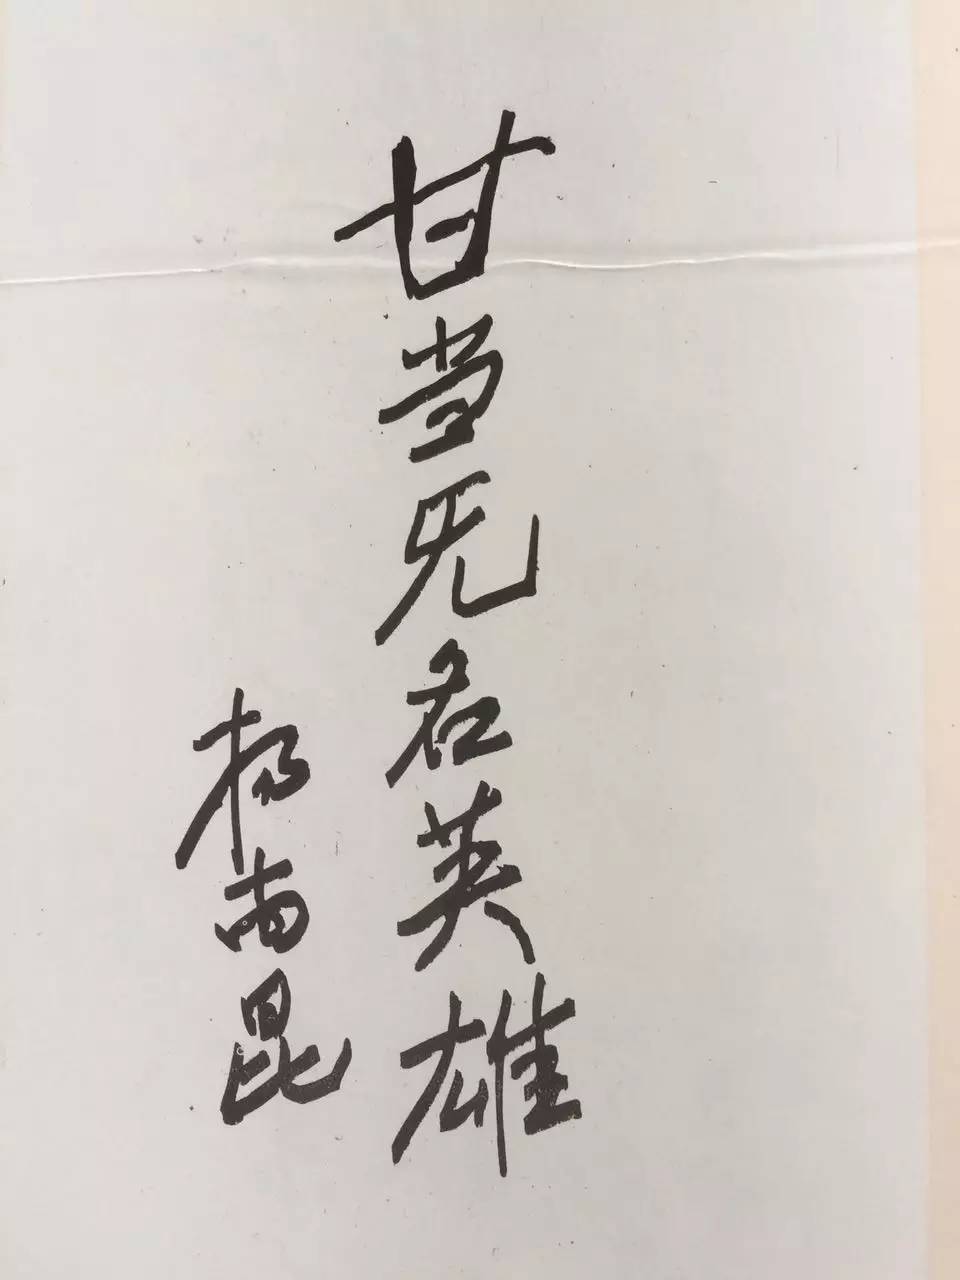 甘当无名英雄
杨尚昆